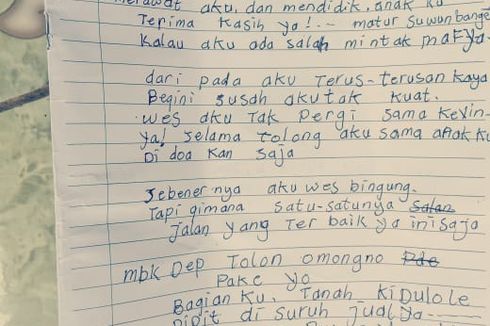 merawat aku, dan mendidik, anak ku
Terima Kasih ya!.. matur suwun banget
Kalau aku ada salah mintak maf ya-
dari pada aku Terus-terusan Kaya
Begini susah aku tak kuat.
wes aku Tak pergi sama Kevin-
ya! selama tolong aku sama anak ku
Di doa kan saja
sebener nya aku wes bingung.
Tapi gimana satu-satunya salan
jalan yang Ter baik ya ini saja
mbk Dep Tolon omongno Pde
Pake yo
Bagian Ku, Tanah Kidul ole
Didit di suruh jual ya